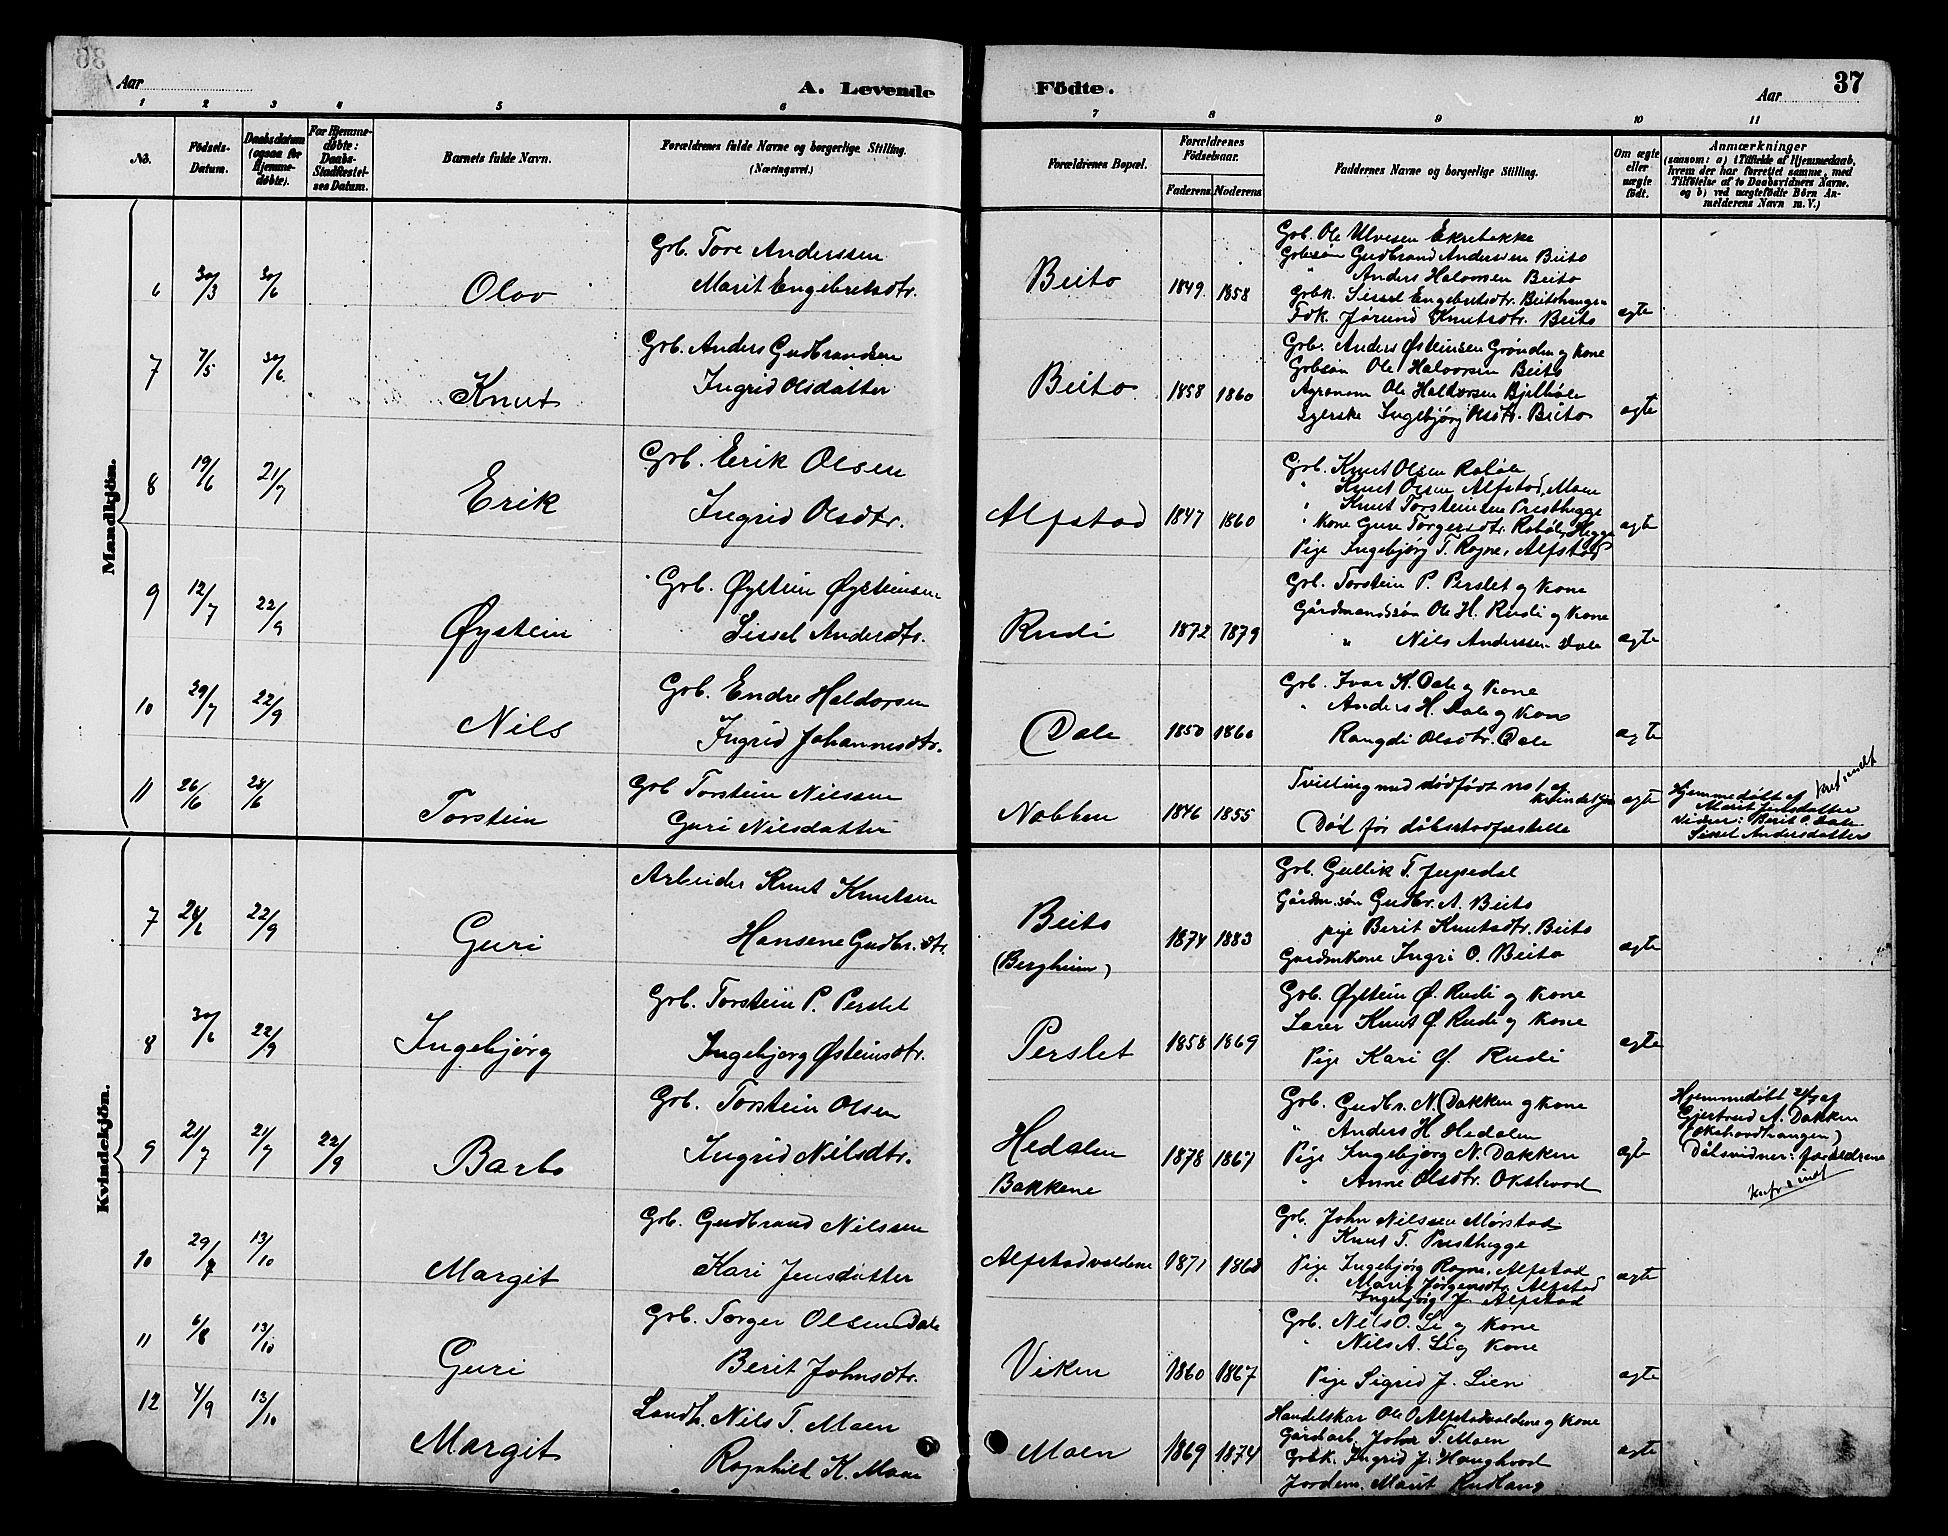 Aar
A. Levende
Födte.
Aar
37
1 2 3 4 5 6 7 8 9 10 11
No.
Födsels-Datum.
Daabsdatum (ogsaa for Hjemmedøbte).
For Hjemmedøbte: Daabs-Stadfæstelses Datum.
Barnets fulde Navn.
Forældrenes fulde Navne og borgerlige Stilling. (Næringsvei.)
Forældrenes Bopæl.
Forældrenes Födselsaar.
Faderens. Moderens.
Faddernes Navne og borgerlige Stilling.
Om ægte eller uægte födt.
Anmærkninger
(saasom: a) i Tilfælde af Hjemmedaab, hvem der har forrettet samme, med Tilföielse af to Daabsvidners Navne. og b) ved uægtefödte Börn Anmelderens Navn m. V.)
Mandkjön.
6 30/3 30/6 Olav
Grb. Tore Anderssen
Marit Engebretsdtr.
Beito 1849 1858
Grb. Ole Ulvesen Ekrebakke
Grbsøn Gudbrand Anderssen Beito
" Anders Halvorsen Beito
Grbk. Sissel Engebretsdtr. Beitohaugen
Fdk. Jørund Knutsdtr. Beito
ægte
7 7/5 30/6 Knut
Grb. Anders Gudbrandsen
Ingrid Olsdatter
Beito 1858 1860
Grb. Anders Østeinsen Grønden og Kone
Grbsøn Ole Halvorsen Beito
Agronom Ole Haldorsen Bjelbøle
Syerske Ingebjørg Olsdtr. Beito
ægte
8 19/6 21/7 Erik
Grb. Erik Olsen
Ingrid Olsdtr.
Alfstad 1847 1860
Grb. Knut Olsen Robøle
" Knut Olsen Alfstad, Moen
" Knut Torsteinsen Presthegge
" Kone Guri Torgersdtr. Robøle, Hegge
Pige Ingebjørg T. Rogne, Alfstad
ægte
9 12/7 22/9 Øystein
Grb. Øystein Øysteinsen
Sissel Andersdtr.
Rudi 1872 1879
Grb. Torstein P. Perslet og Kone
Gårdmandssøn Ole H. Rudi og Kone
" Nils Anderssen Dale
ægte
10 29/7 22/9 Nils
Grb. Endre Haldorsen
Ingrid Johannesdtr.
Dale 1850 1860
Grb. Ivar K. Dale og Kone
" Anders H. Dale og Kone
Rangdi Olsdtr. Dale
ægte
11 26/6 28/6 Torstein
Grb Torstein Nilssen
Guri Nilsdatter
Nobben 1846 1855
Tvilling med dødfødt no 1 af Kvindekjøn
Død før dåbsstadfæstelse
ægte
Hjemmedøbt af
Marit Jensdatter
Vidner: Berit O. Dale
Sissel Andersdatter
Kvindekjön.
7 28/6 22/9 Guri
Arbeider Knut Knutsen
Hansene Gudbr.dtr.
Beito
(Bergheim)
1874 1883
Grb. Gullik T. Jupedal
Gårdm.søn Gudbr. A. Beito
pige Berit Knutsdtr. Beito
Gardmkone Ingri O. Beito
ægte
8 30/6 22/9 Ingebjørg
Grb. Torstein P. Perslet
Ingebjørg Østeinsdtr.
Perslet 1858 1869
Grb. Øystein Ø. Rudi og Kone
Lærer Knut Ø. Rudi og Kone
Pige Kari Ø. Rudi
ægte
9 21/7 21/7 22/9 Barbo
Grb. Torstein Olsen
Ingrid Nilsdtr.
Hedalen
Bakkene
1878 1867
Grb. Gudbr. N. Dakken og Kone
" Anders H. Hedalen
Pige Ingebjørg N. Dakken
" Anne Olsdtr. Okshovd
ægte
Hjemmedøbt 21/7 af
Gjertrud A. Dakken
(Okshovdhaugen)
Dåbsvidner: forældrene
10 29/7 13/10 Margit
Grb. Gudbrand Nilssen
Kari Jensdatter
Alfstadvoldene 1871 1868
Grb. John Nilssen Mørstad
" Knut T. Presthegge
Pige Ingebjørg Rogne, Alfstad
" Marit Jørgensdtr. Alfstad
Ingebjørg J. Alfstad
ægte
11 6/8 13/10 Guri
Grb. Torger Olsen Dale
Berit Johnsdtr.
Viken 1860 1867
Grb. Nils O. Li og Kone
" Nils A. Li og Kone
Pige Sigrid J. Lien
ægte
12 4/9 13/10 Margit
Landh. Nils T. Moen
Ragnhild K. Moen
Moen 1869 1874
Handelskar Ole O. Alfstadvoldene og Kone
Gårdarb. John T. Moen
Grbk. Ingrid J. Haughovd
Jordem. Marit Rudlang
ægte